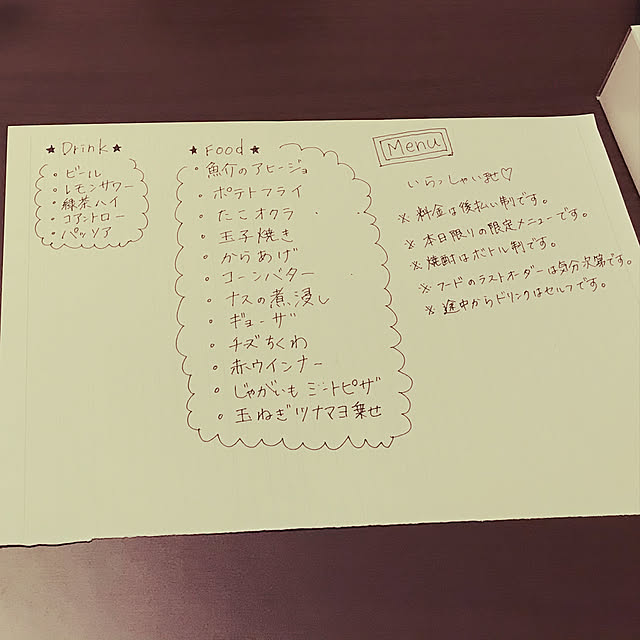 ★ Drink ★
・ビール
・レモンサワー
・緑茶ハイ
・コアントロー
・パッソア
★ Food ★
・魚介のアヒージョ
・ポテトフライ
・たこオクラ
・玉子焼き
・からあげ
・コーンバター
・ナスの煮浸し
・ギョーザ
・チーズちくわ
・赤ウインナー
・じゃがいもミートピザ
・玉ねぎツナマヨ乗せ
Menu
いらっしゃいませ♡
※ 料金は後払い制です。
※ 本日限りの限定メニューです。
※ 焼酎はボトル制です。
※ フードのラストオーダーは気分次第です。
※ 途中からドリンクはセルフです。